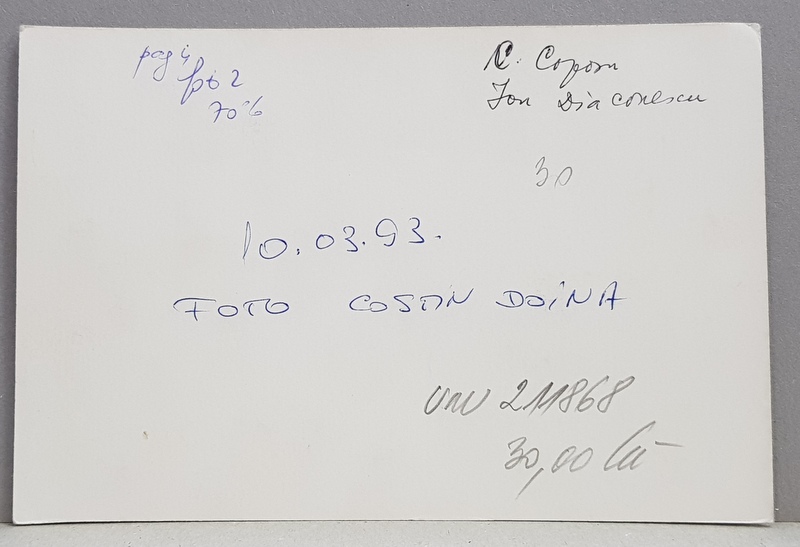 pag 4
pt 2
70%
C. Coposu
Ion Diaconescu
30
10.03.93.
FOTO COSTIN DOINA
211868
30,00 lei